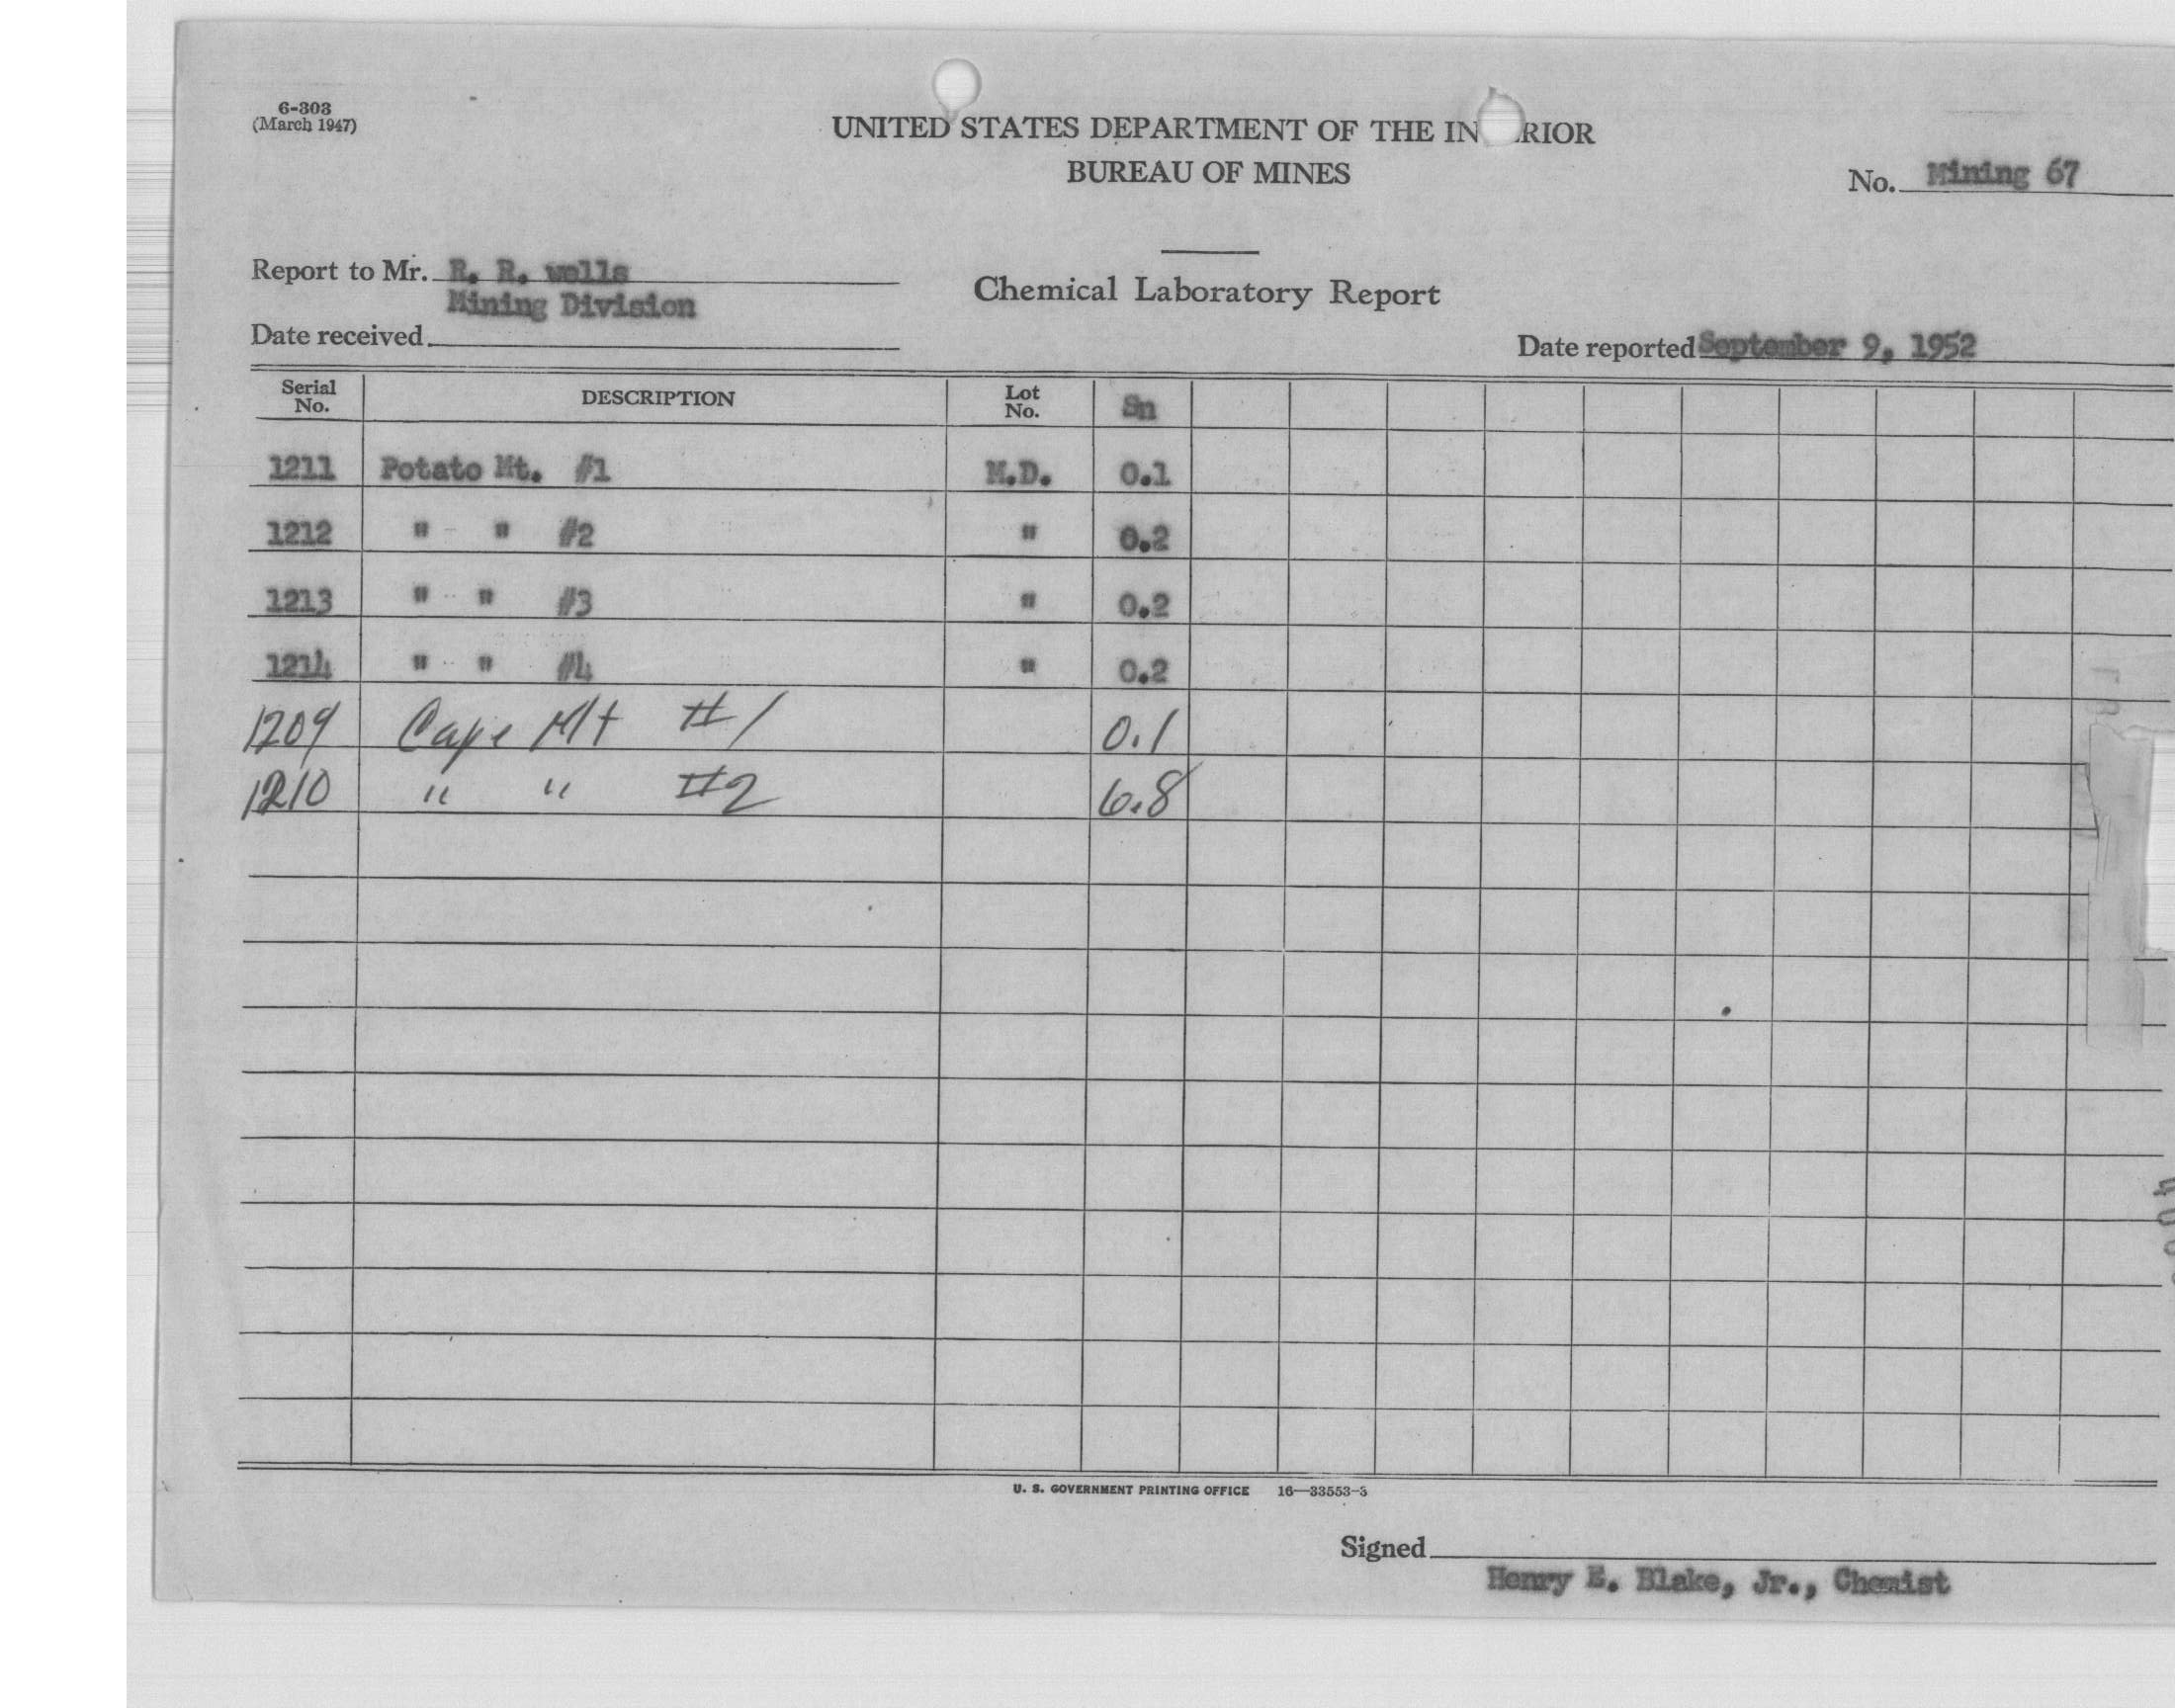 6-303
(March 1947)
UNITED STATES DEPARTMENT OF THE IN RIOR
BUREAU OF MINES
No. Mining 67
Report to Mr. R. R. wells
Mining Division
Chemical Laboratory Report
Date received
Date reported September 9, 1952
Serial No. DESCRIPTION Lot No. Sn
1211 Potato Mt. #1 M.D. 0.1
1212 " " #2 " 0.2
1213 " " #3 " 0.2
1214 " " #4 " 0.2
1209 Cape Mt #1 0.1
1210 " " #2 6.8
U. S. GOVERNMENT PRINTING OFFICE 16—33553-3
Signed
Henry E. Blake, Jr., Chemist